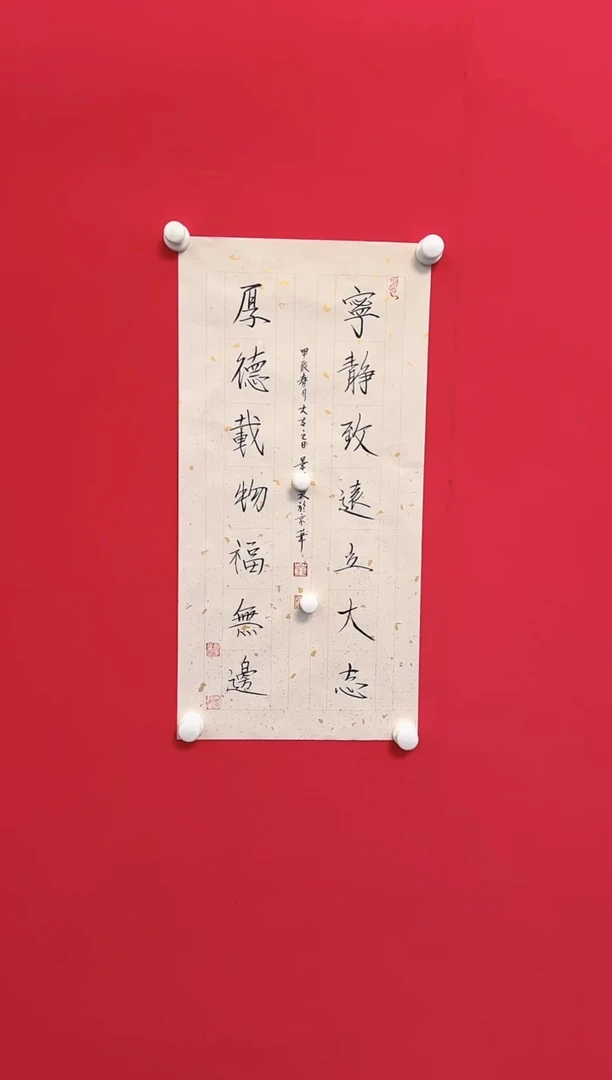 寧靜致遠立大志
甲辰春月大吉之日
於京華
厚德載物福無邊